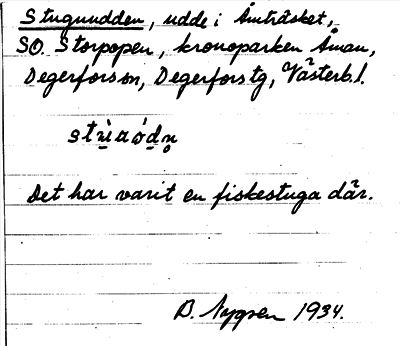 Stugundden, udde i Åmträsket,
SO. Storpopen, kronoparken Åman,
Degerforssn, Degerforstg, Västerb.l.
Det har varit en fiskestuga där.
D. Nygren 1934.